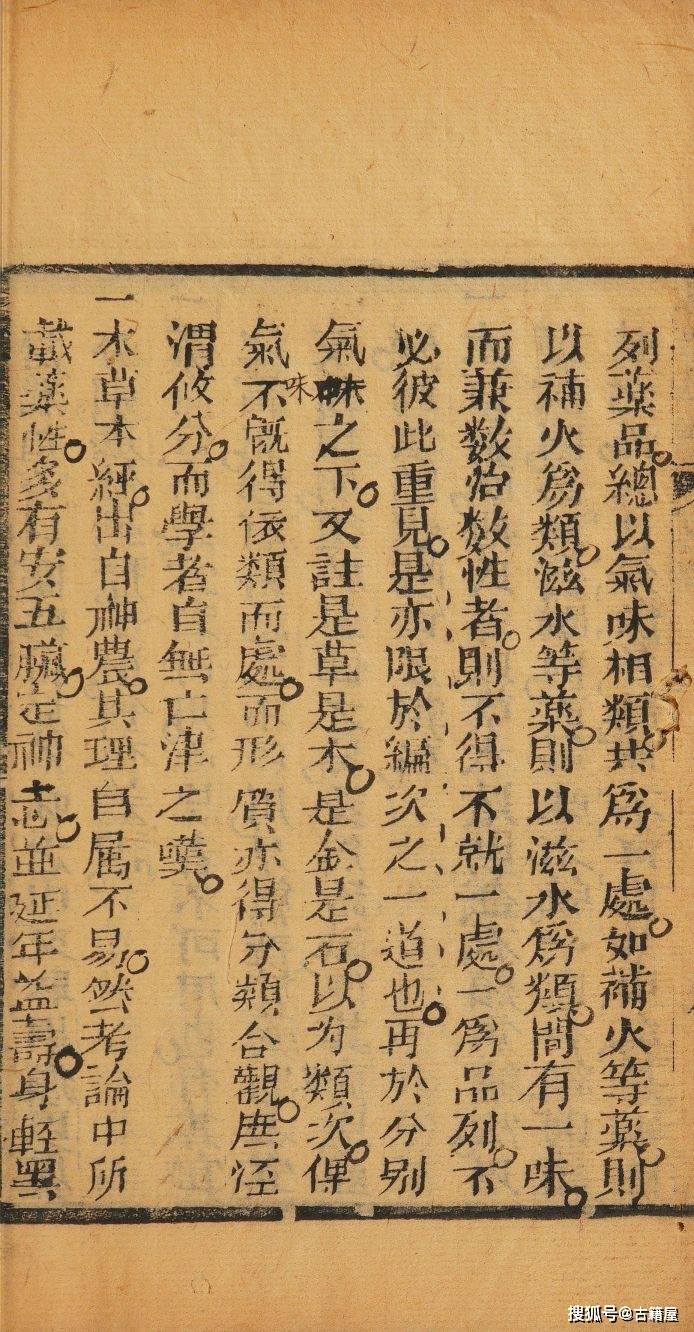 列藥品總以氣味相類共爲一處如補火等藥則
以補火爲類滋水等藥則以滋水爲類間有一味
而兼數治數性者則不得不就一處一爲品列不
必彼此重見是亦限於編次之一道也再於分別
氣味之下又註是草是木是金是石以为類次俾
味
氣不旣得依類而處而形質亦得分類合觀庶涇
渭攸分而學者自無亡津之嘆
一本草本經出自神農其理自属不易然考論中所
載藥性多有安五臟定神志並延年益壽身輕
搜狐号@古籍屋